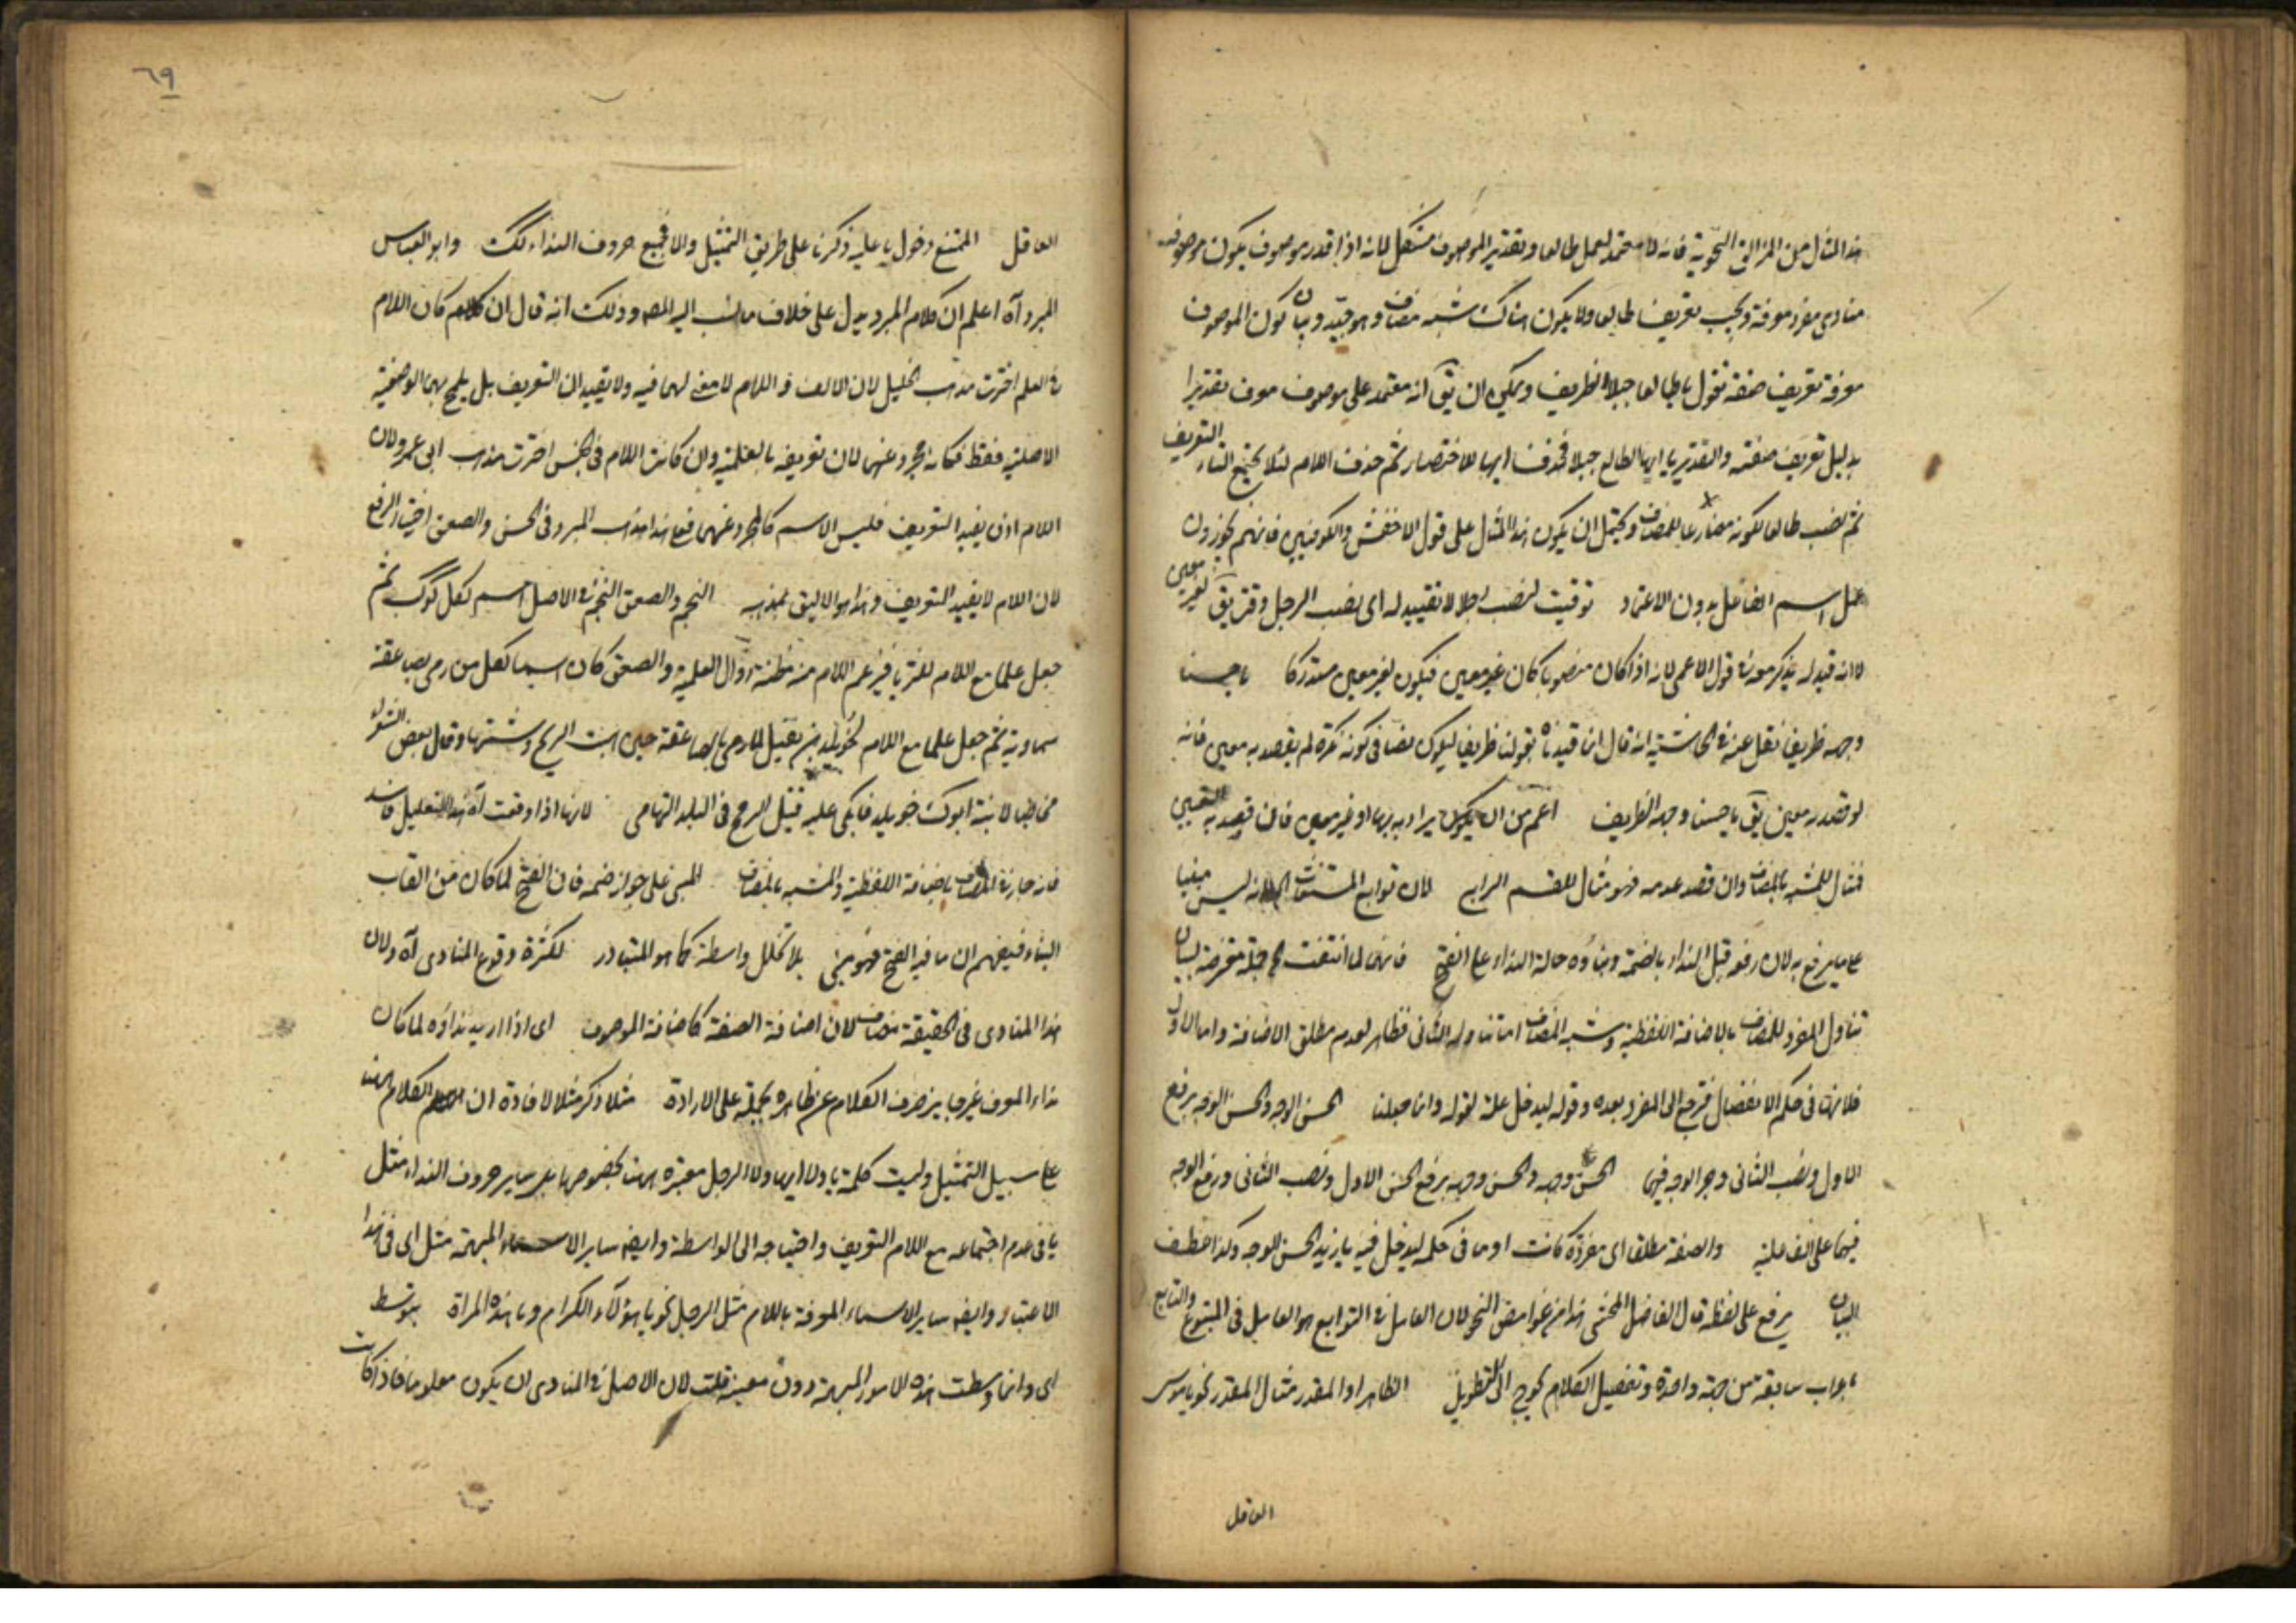 هذا المثال من المزالق النحوية فانه لا معتمد لعمل طالعا وتقدير الموصوف مشكل لانه اذا قدر موصوف يكون موصوفه
منادى مفرد معرفة ويجب تعريف طالعا ولا يكون هناك شبه مضاف وهو جيد وبان كون الموصوف
معرفة تعريف صفة تقول يا طالعا جبلا الظريف ويمكن ان يق انه معتمد على موصوف معرف تقديرا
بدليل تعريف صفته والتقدير يا ايها الطالع جبلا فحذف ايها للاختصار ثم حذف اللام لئلا يجتمع النداء التعريف
ثم نصب طالعا لكونه مضارعا للمضاف ويحتمل ان يكون هذا المثال على قول الاخفش والكوفيين فانهم يجوزون
عمل اسم الفاعل بدون الاعتماد توقيت لنصب رجلا لا تقييد له اى نصب الرجل وقت يق لغير معين
لا انه قيد له يذكر معه فى قول الاعمى لانه اذا كان منصوبا كان غير معين فيكون لغير معين مستدركا يا حسنا
وجهه ظريفا نقل عنه فى الحاشية انه قال انما قيدناه بقولنا ظريفا ليكون نصا فى كونه نكرة لم يقصد به معين فانه
لو قصد به معين يق يا حسنا وجهه الظريف اعم من ان يكون يراد به بهما او غير معين فان قصد به التعيين
فمثال للمشبه بالمضاف وان قصد عدمه فهو مثال للقسم الرابع لان توابع المستغاث لانه ليس مبنيا
على ما يرفع به لان رفعه قبل النداء بالضمة وبناؤه حالة النداء على الفتح فانهما لما انتفت جملة معترضة لبيان
تناول المفرد للمضاف بالاضافة اللفظية وشبه المضاف اما تناوله الثانى فظاهر لعدم مطلق الاضافة واما الاول
فلانها فى حكم الانفصال فترجع الى المفرد بعده وقوله ليدخل علة لقوله وانما جعلنا الحسن الوجه والحسن الوجه برفع
الاول ونصب الثانى وجر الوجه فيهما الحسن وجهه والحسن وجهه برفع الحسن الاول ونصب الثانى ورفع الوجه
فيهما على الفاعلية والصفة مطلقا اى مفردة كانت او ما فى حكمه ليدخل فيه يا زيد الحسن الوجه وكذا عطف
البيان يرفع على لفظه قال الفاضل المحشى هذا من غوامض النحو لان العامل فى التوابع هو العامل فى المتبوع والتابع
باعراب سابقه من جهة واحدة وتفصيل الكلام يحوج الى التطويل الظاهر او المقدر مثال المقدر نحو يا موسى
العاقل
٦٩
العاقل الممتنع دخول يا عليه ذكرنا على طريق التمثيل والا فجميع حروف النداء كك وابو العباس
المبرد اه اعلم ان كلام المبرد يدل على خلاف ما نسب اليه المص وذلك انه قال ان كان اللام
فى العلم اخترت مذهب الخليل لان الالف و اللام لا معنى لهما فيه ولا يفيدان التعريف بل يلمح بهما الوصفية
الاصلية فقط فكانه مجرد عنهما لان تعريفه بالعلمية وان كانت اللام فى الجنس اخترت مذهب ابى عمرو لان
اللام اذن يفيد التعريف فليس الاسم كالمجرد عنهما فعلى هذا مذهب المبرد فى الحسن والصعق اختيار الرفع
لان اللام لا يفيد التعريف وهذا هو الاليق بمذهبه النجم والصعق النجم فى الاصل اسم لكل كوكب ثم
جعل علما مع اللام للثريا فنزع اللام منه مظنة زوال العلمية والصعق كان اسما لكل من رمى بصاعقة
سماوية ثم جعل علما مع اللام لخويلد بن نفيل لما رمى بالصاعقة حين اهبت الريح وشتمها وقال بعض الشعراء
مخاطبا لابنة ابوك خويلد فابكى عليه قتيل الريح فى البلد التهامى لانها اذا وقعت اه هذا التعليل فاسد
فانه جار فى المضاف باضافة اللفظية والمشبه بالمضاف المبنى على جواز ضمه فان الفتح لما كان من القاب
البناء فيفهم ان ما فيه الفتح فهو مبنى بلا تخلل واسطة كما هو المتبادر لكثرة وقوع المنادى اه ولان
هذا المنادى فى الحقيقة مضاف لان اضافة الصفة كاضافة الموصوف اى اذا اريد نداؤه لما كان
نداء المعرف غير جايز صرف الكلام عن ظاهره بحمله على الارادة مثلا ذكر مثلا لافادة ان الكلام هنا
على سبيل التمثيل وليست كلمة يا ولا ايها ولا الرجل معتبرة هنا بخصوصها بل ساير حروف النداء مثل
يا فى عدم اجتماعه مع اللام التعريف واحتياجه الى الواسطة وايضا ساير الاسماء المبهمة مثل اى فى هذا
الاعتبار وايضا ساير الاسماء المعرفة باللام مثل الرجل نحو يا هؤلاء الكرام ويا هذه المراة بتوسط
اى وانما وسطت هذه الامور المبهمة دون معينة قلت لان الاصل فى المنادى ان يكون معلوما فاذا كانت